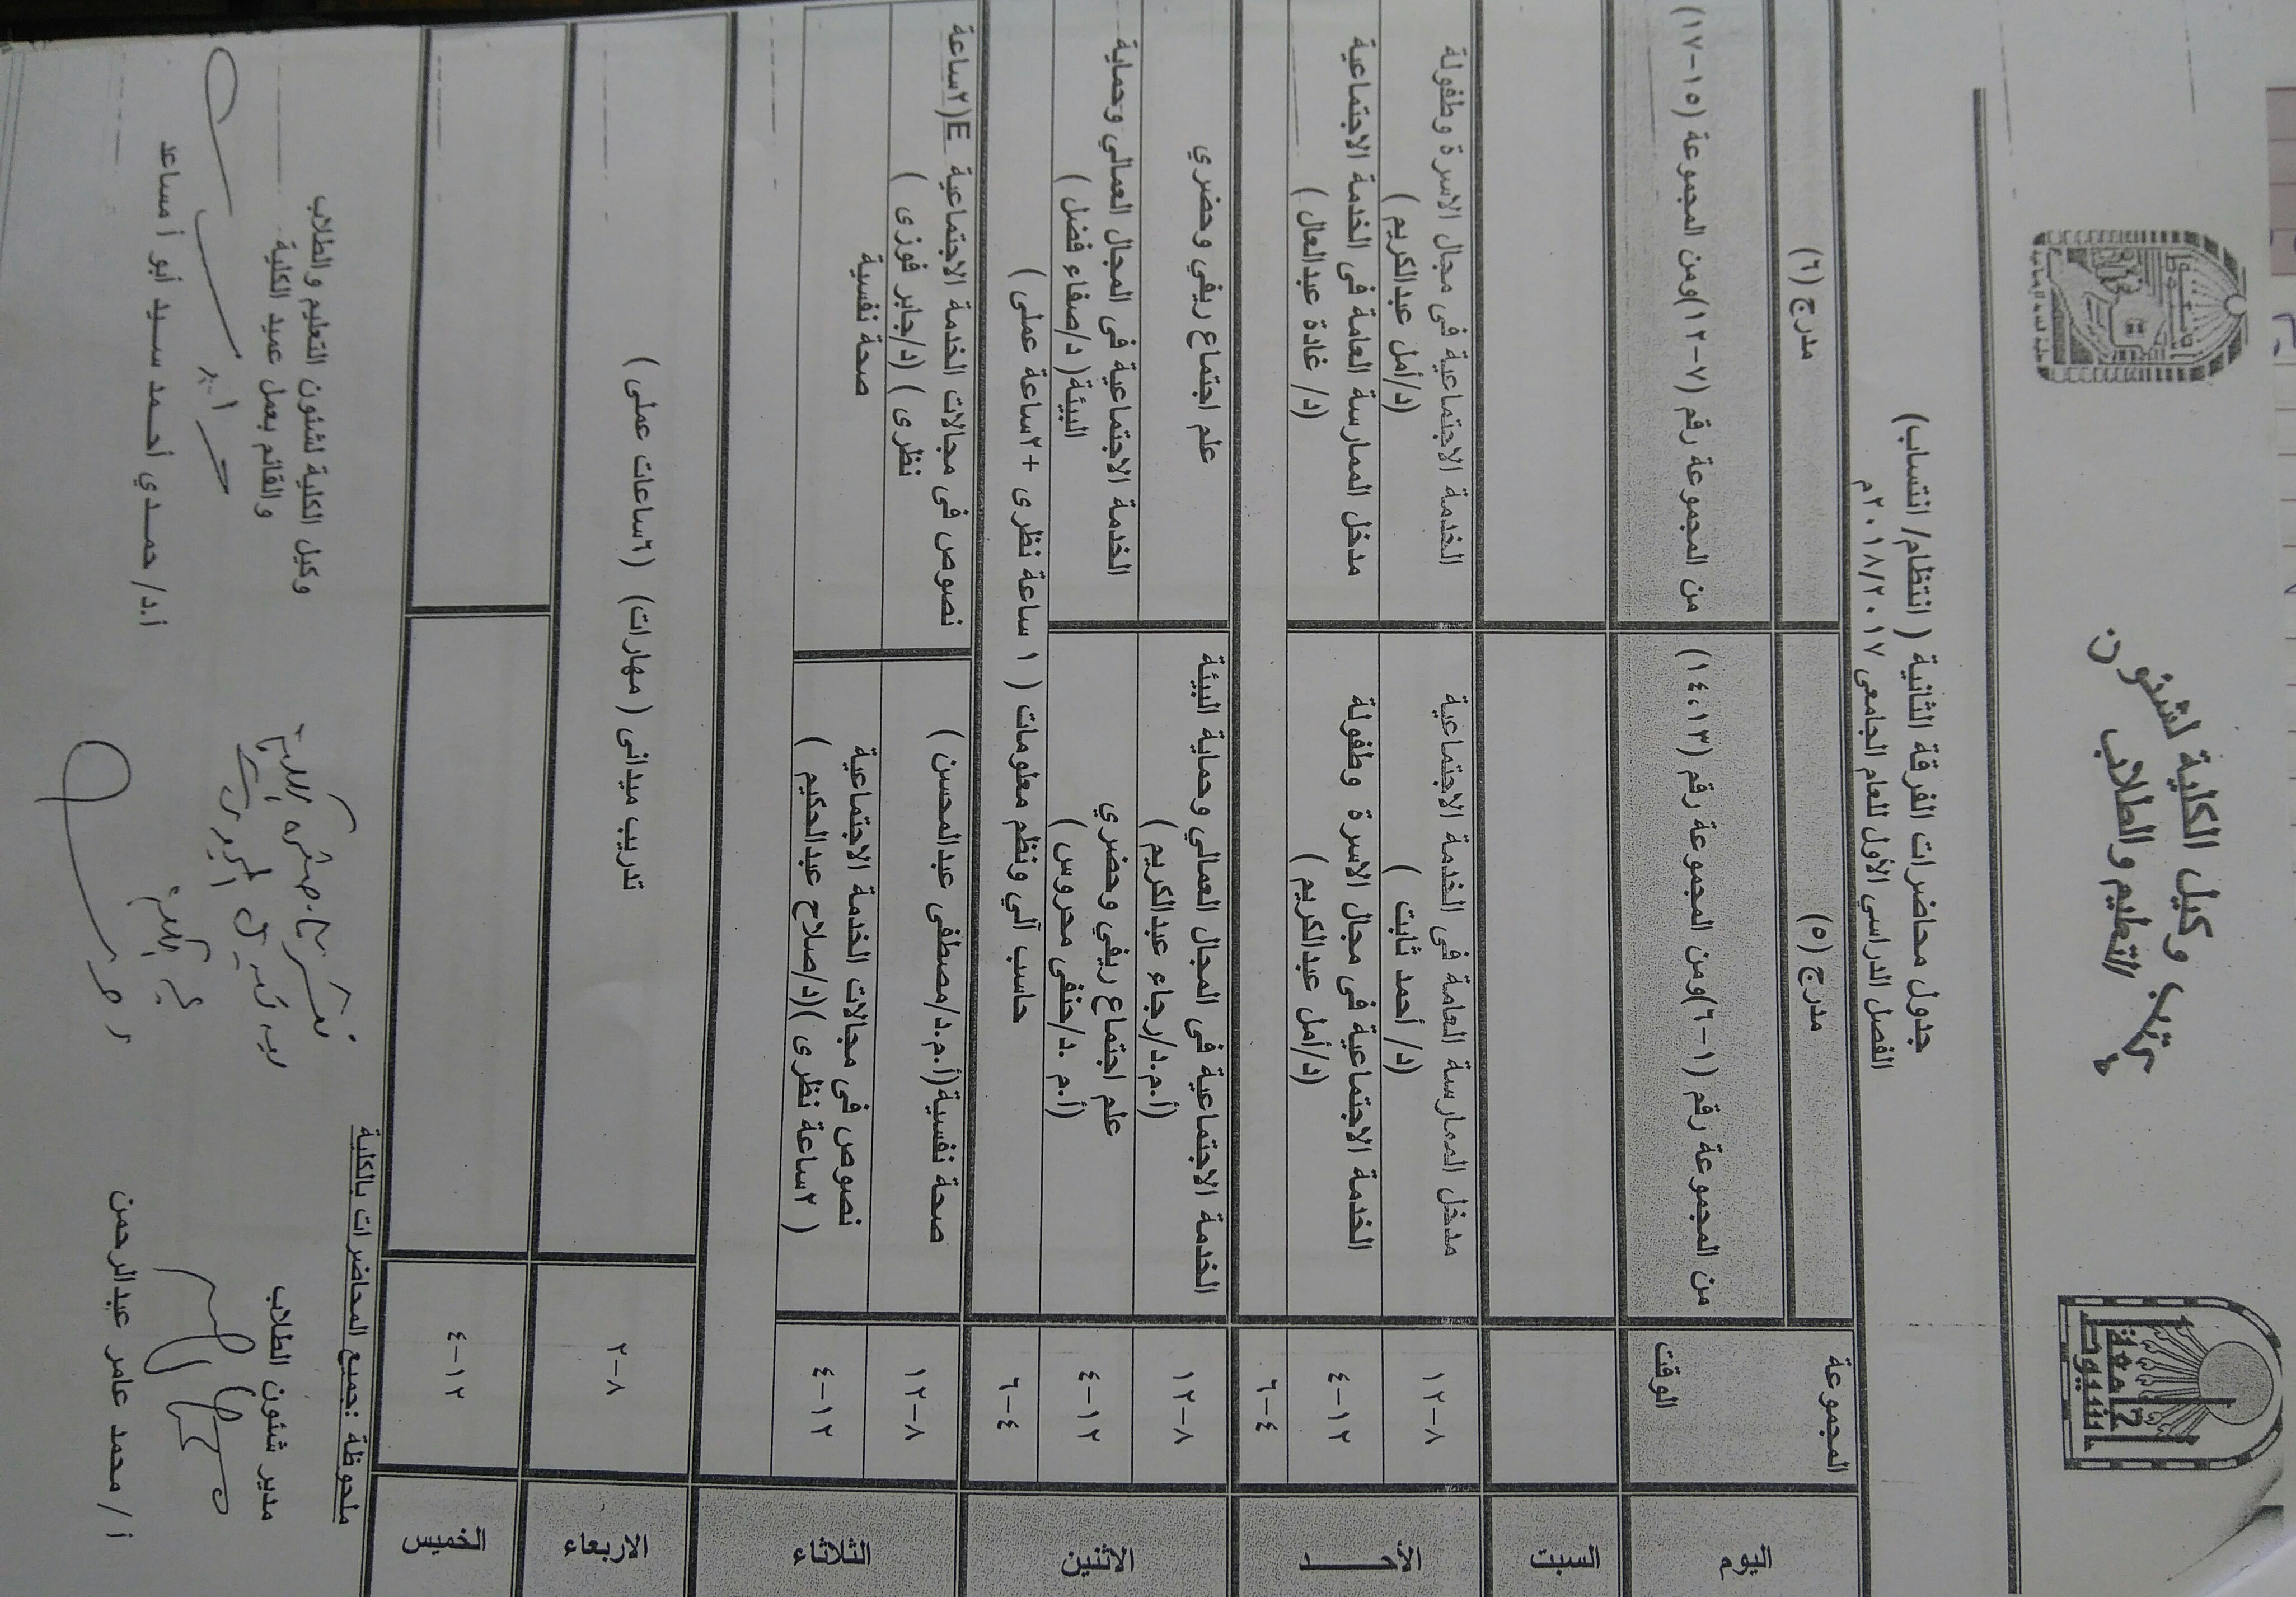 جامعة
أسيوط
مكتب وكيل الكلية لشئون
التعليم والطلاب
جدول محاضرات الفرقة الثانية ( انتظام/ انتساب)
الفصل الدراسي الأول للعام الجامعى ٢٠١٨/٢٠١٧م
اليوم
المجموعة
الوقت
مدرج (٥)
مدرج (٦)
من المجموعة رقم (١-٦)ومن المجموعة رقم (١٤،١٣)
من المجموعة رقم (٧-١٢)ومن المجموعة (١٥-١٧)
السبت
الأحـــــد
٨-١٢
مدخل الممارسة العامة فى الخدمة الاجتماعية
(د/ أحمد ثابت )
الخدمة الاجتماعية فى مجال الاسرة وطفولة
(د/أمل عبدالكريم )
١٢-٤
الخدمة الاجتماعية فى مجال الاسرة وطفولة
(د/أمل عبدالكريم )
مدخل الممارسة العامة فى الخدمة الاجتماعية
(د/ غادة عبدالعال )
٤-٦
الاثنين
٨-١٢
الخدمة الاجتماعية فى المجال العمالي وحماية البيئة
(أ.م.د/رجاء عبدالكريم )
علم اجتماع ريفي وحضري
١٢-٤
علم اجتماع ريفي وحضري
(أ.م .د/حنفى محروس )
الخدمة الاجتماعية فى المجال العمالي وحماية
البيئة( د/صفاء فضل )
٤-٦
حاسب آلي ونظم معلومات ( ١ ساعة نظرى +٢ساعة عملى )
الثلاثاء
٨-١٢
صحة نفسية(أ.م.د/مصطفى عبدالمحسن )
نصوص فى مجالات الخدمة الاجتماعية E(٢ساعة
نظرى ) (د/جابر فوزى )
١٢-٤
نصوص فى مجالات الخدمة الاجتماعية
( ٢ساعة نظرى )(د/صلاح عبدالحكيم )
صحة نفسية
الاربعاء
٨-٢
تدريب ميدانى ( مهارات) (٦ساعات عملى )
الخميس
١٢-٤
ملحوظة :جميع المحاضرات بالكلية
مدير شئون الطلاب
أ / محمد عامر عبدالرحمن
وكيل الكلية لشئون التعليم والطلاب
والقائم بعمل عميد الكلية
أ.د/ حمـدي أحـمد سـيد أبو أ مساعد